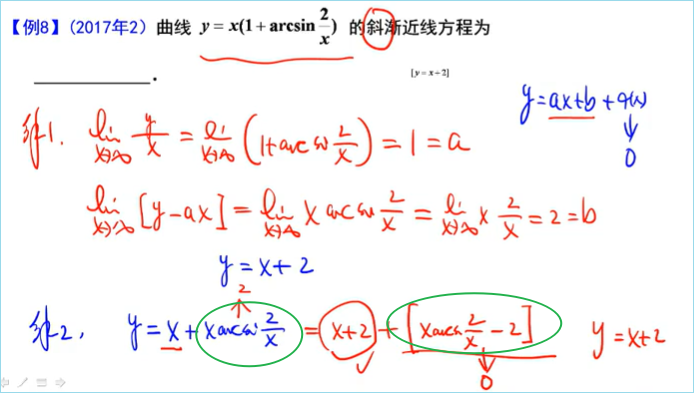 【例8】(2017年2) 曲线 y = x(1 + arcsin 2/x) 的斜渐近线方程为
______.
[y = x + 2]
y = ax + b + α(x)
↓
0
解1. lim x→∞ y/x = lim x→∞ (1 + arcsin 2/x) = 1 = a
lim x→∞ [y - ax] = lim x→∞ x arcsin 2/x = lim x→∞ x 2/x = 2 = b
y = x + 2
2
↑
解2, y = x + x arcsin 2/x = x + 2 + [x arcsin 2/x - 2] y = x + 2
↓
0